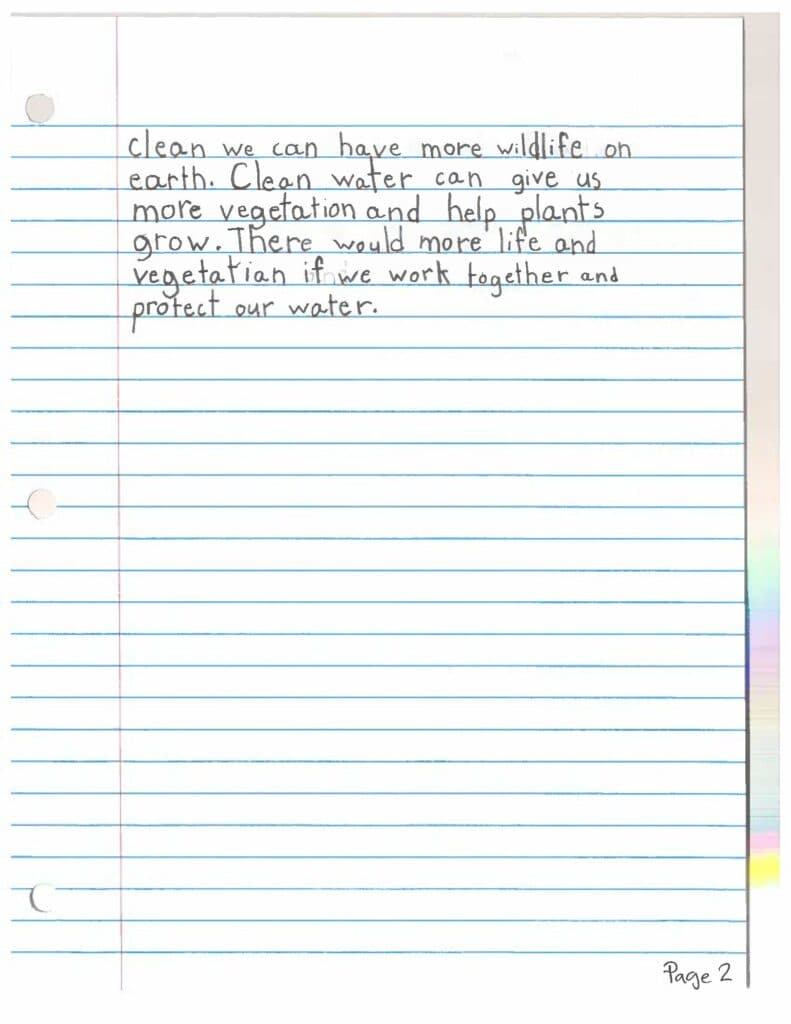 clean we can have more wildlife on
earth. Clean water can give us
more vegetation and help plants
grow. There would more life and
vegetatian if we work together and
protect our water.
Page 2